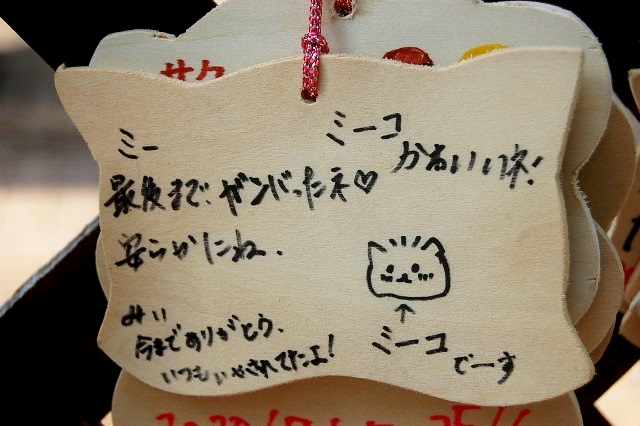 サク
ミー
最後まで、ガンバったネ♡
安らかにね.
ミーコ
かわいいネ!
↑
ミーコ でーす
みい
今までありがとう.
いつもいやされてたよ!